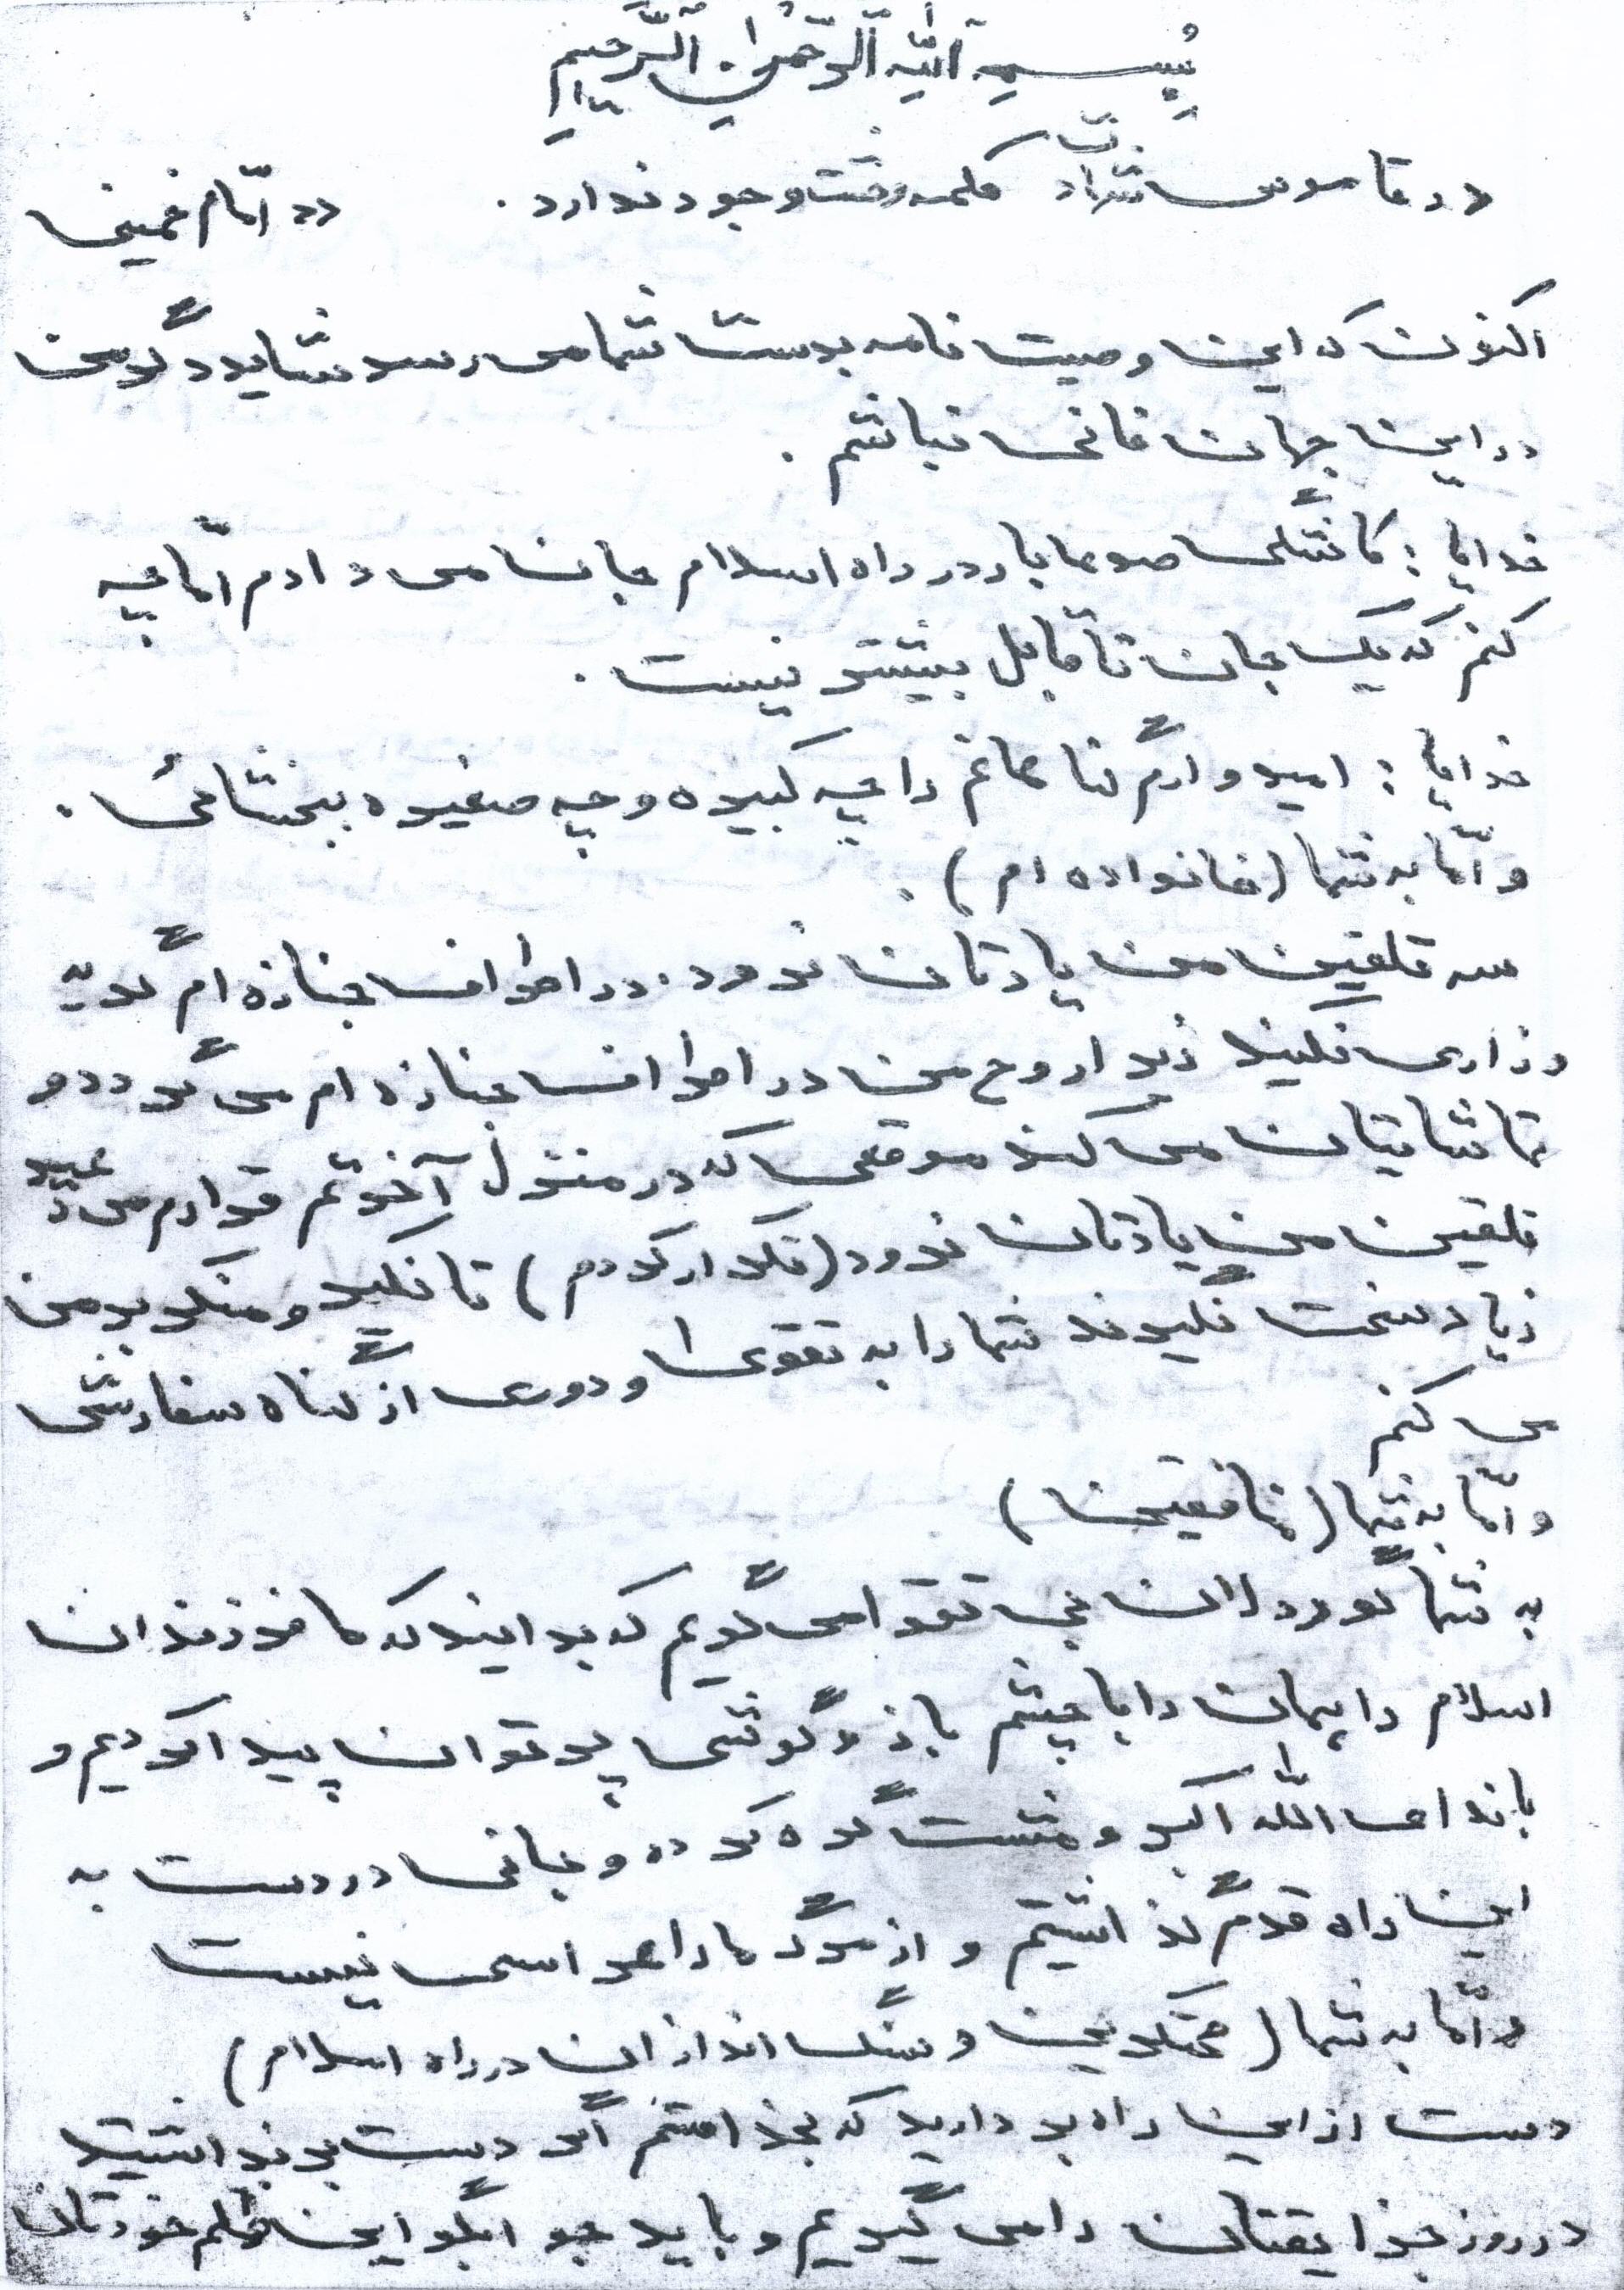 بِسمِ اللّهِ الرَّحمنِ الرَّحیمِ
در قاموس شهادت کلمه وحشت وجود ندارد. «« امّام خمینی
اکنون که این وصیت نامه بدست شما می رسد شاید دگر من
در این جهان فانی نباشم.
خدایا: کاشکی صدها بار در راه اسلام جان می دادم امّا چه
کنم که یک جان نا قابل بیشتر نیست.
خدایا: امیدوارم گناهانم را چه کبیره و چه صغیره ببخشائی.
و امّا به شما (خانواده ام).
سه تلقین من یادتان نرود. در اطراف جنازه ام گریه
و زاری نکنید زیرا روح من در اطراف جنازه ام می گردد و
تماشایتان می کند موقعی که در منزل آخرتم قرارم می دهید
تلقین من یادتان نرود (تکرار کردم) تا نکیر و منکر بر من
زیاد سخت نگیرند شما را به تقوی و دوری از گناه سفارش
می کنم
و امّا به شما (منافقین)
به شما گوردلان بی تقوا می گویم که بدانید که ما فرزندان
اسلام راهمان را با چشم باز و گوشی پر توان پیدا کردیم و
با ندای اللّه اکبر و مشت گره کرده و جانی در دست به
این راه قدم گذاشتیم و از مرگ ما را هراسی نیست
و امّا به شما (محتکرین و سنگ اندازان در راه اسلام)
دست از این راه بردارید که بخدا قسم اگر دست برندارشتید
در روز جزا یقتان را می گیریم و باید جوابگو این ظلم خودتان